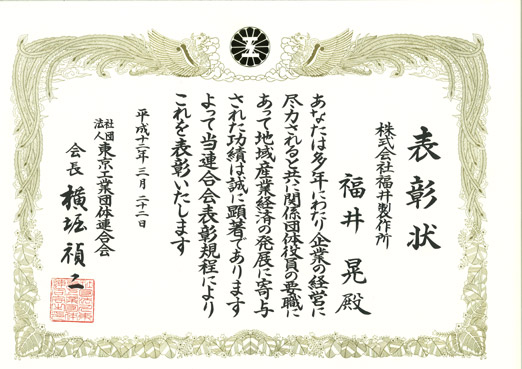 表彰状
株式会社福井製作所
福井晃殿
あなたは多年にわたり企業の経営に
尽力されると共に関係団体役員の要職に
あって地域産業経済の発展に寄与
された功績は誠に顕著であります
よって当連合会表彰規程により
これを表彰いたします
平成十二年三月二十二日
社団法人東京工業団体連合会
会長横堀禎二